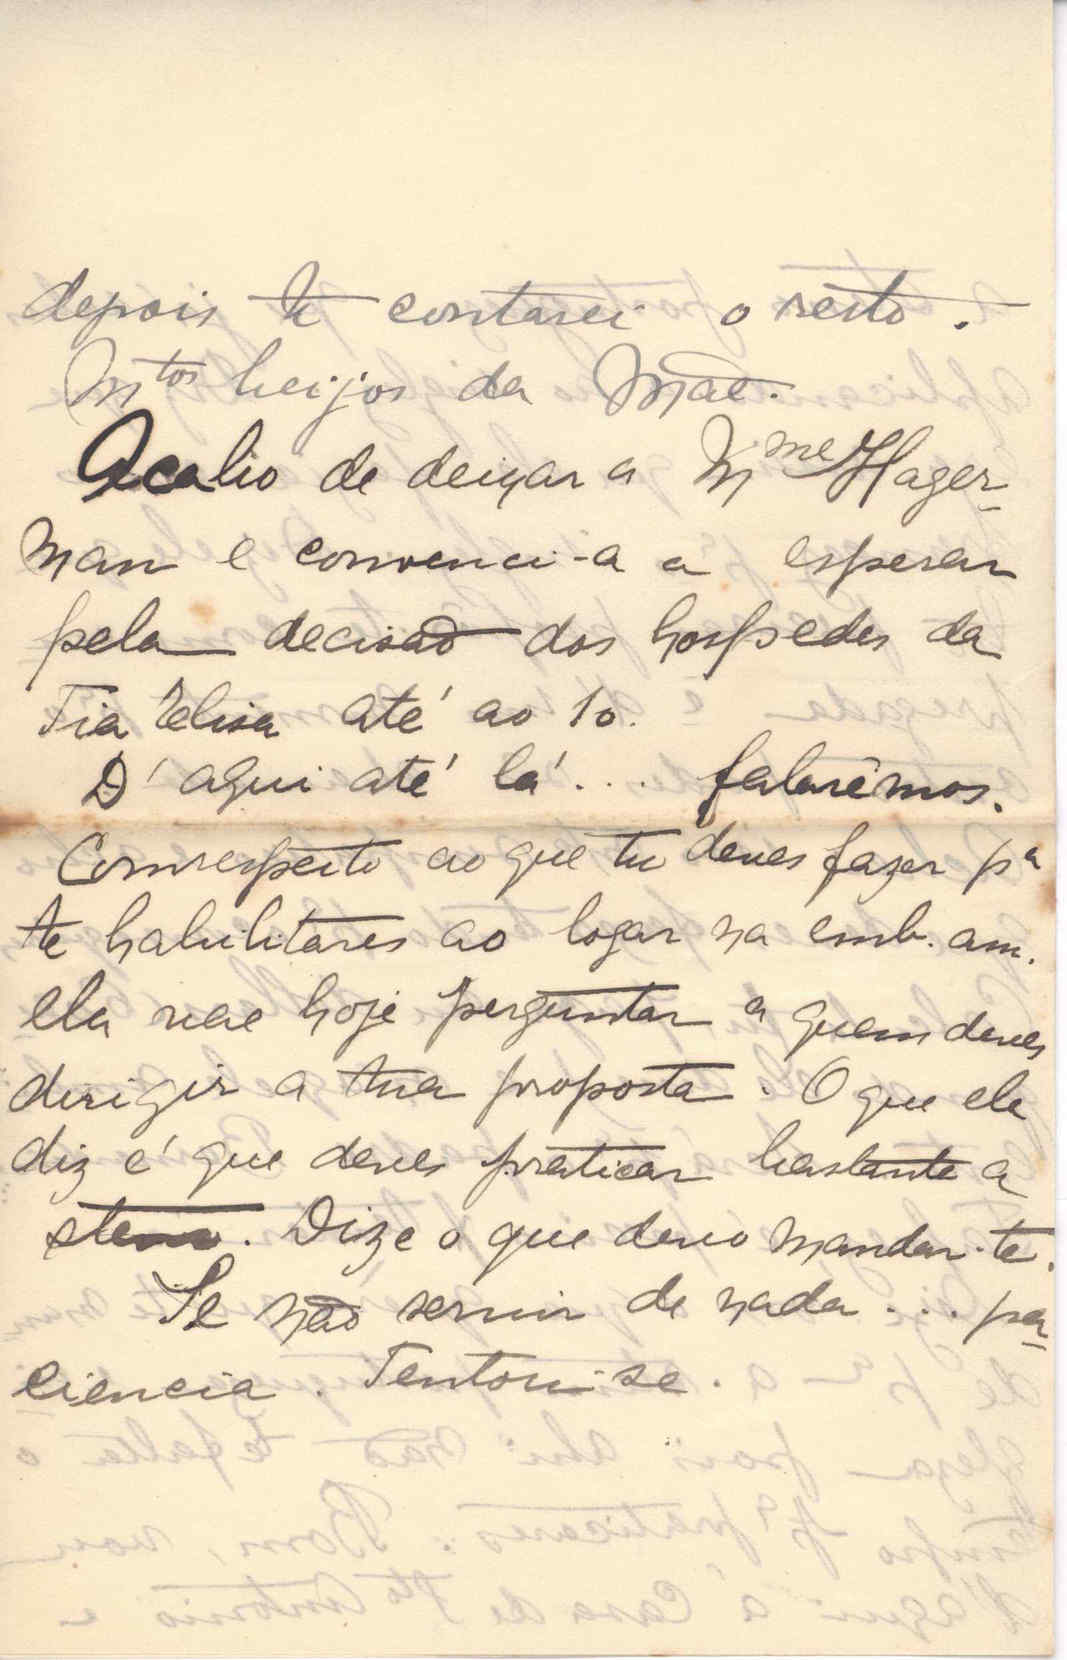 depois te contarei o resto.
Mtos beijos da Mãe.
Acabo de deixar a Mme Hager-
man e convenci-a a esperar
pela decisão dos hospedes da
Tia Elisa até ao 10.
D'aqui até lá... falarêmos.
Com respeito ao que tu deves fazer pa
te habilitares ao logar na emb. am.
ela vae hoje perguntar a quem deves
dirigir a tua proposta. O que ele
diz é que deves praticar bastante a
steno. Dize o que devo mandar-te.
Se não servir de nada... pa-
ciencia. Tentou-se.